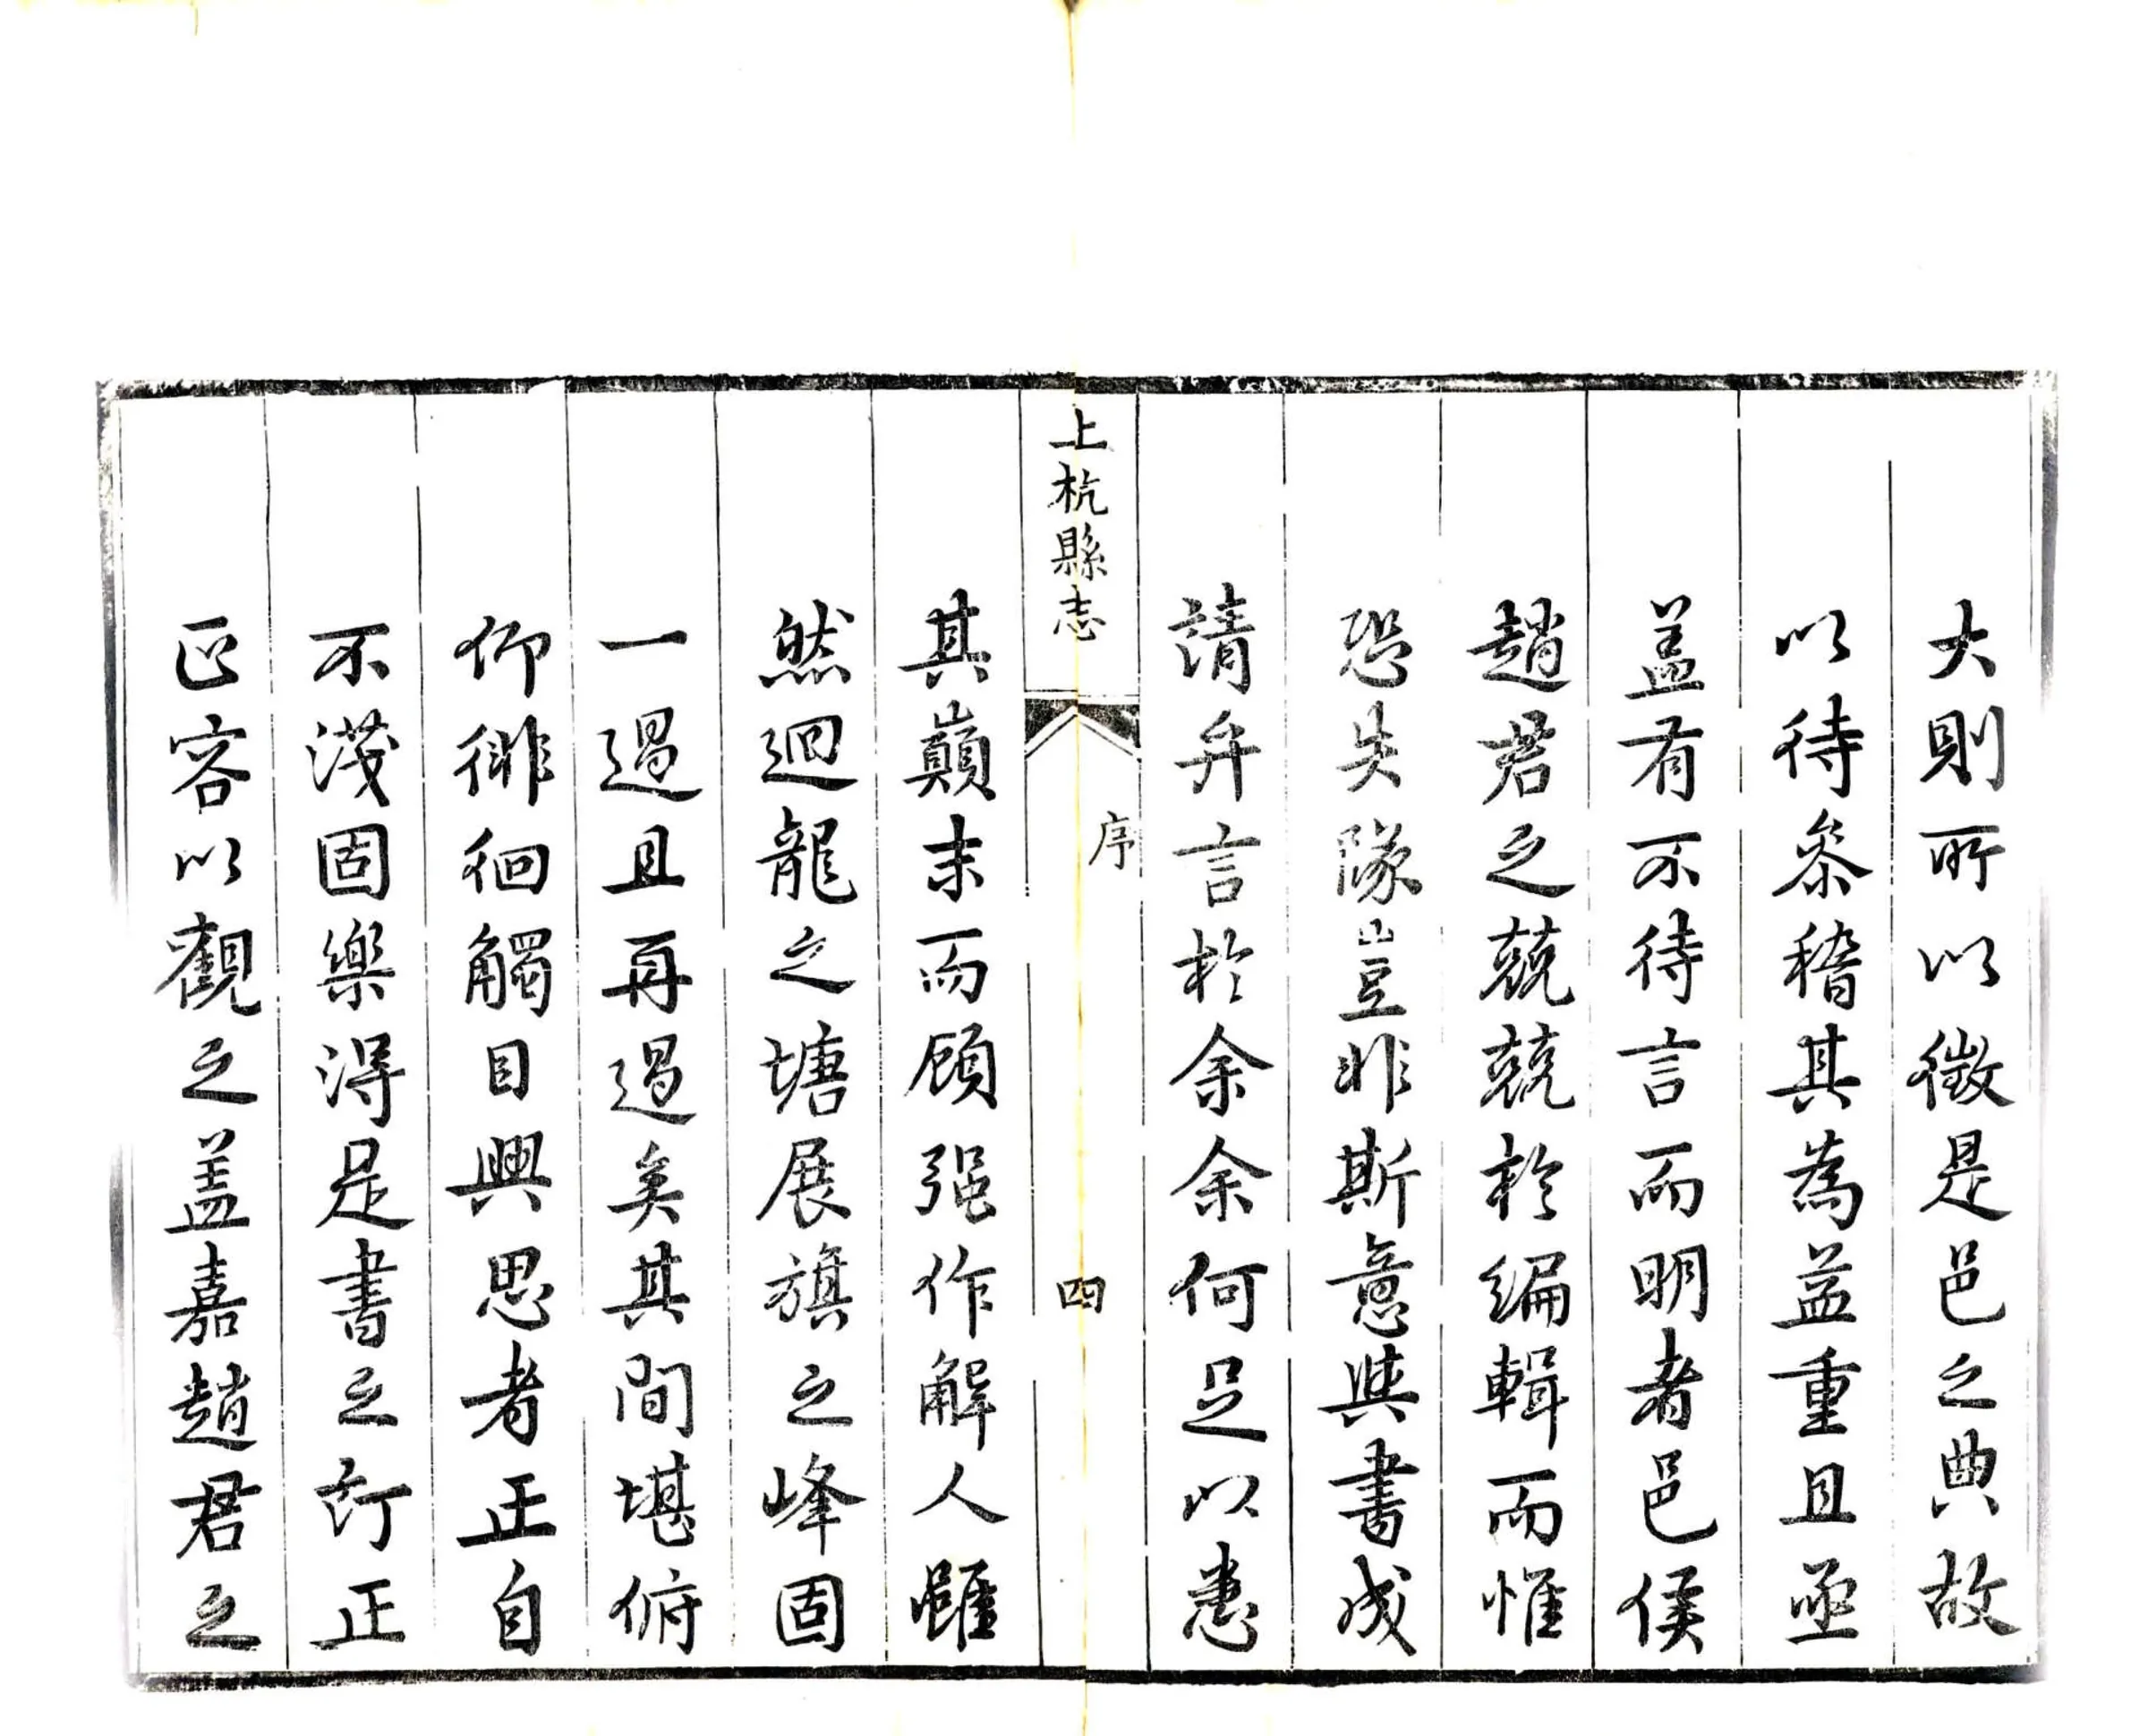 大則所以徵是邑之典故
以待叅稽其為益重且亟
盖有不待言而明者邑侯
趙君之兢兢於編輯而惟
恐失隊豈非斯意與書成
請弁言於余余何足以悉
上杭縣志
序
四
其巔末而顧强作解人雖
然迴龍之塘展旗之峰固
一過且再過矣其間堪俯
仰徘徊觸目興思者正自
不淺固樂得是書之訂正
正容以觀之盖嘉趙君之